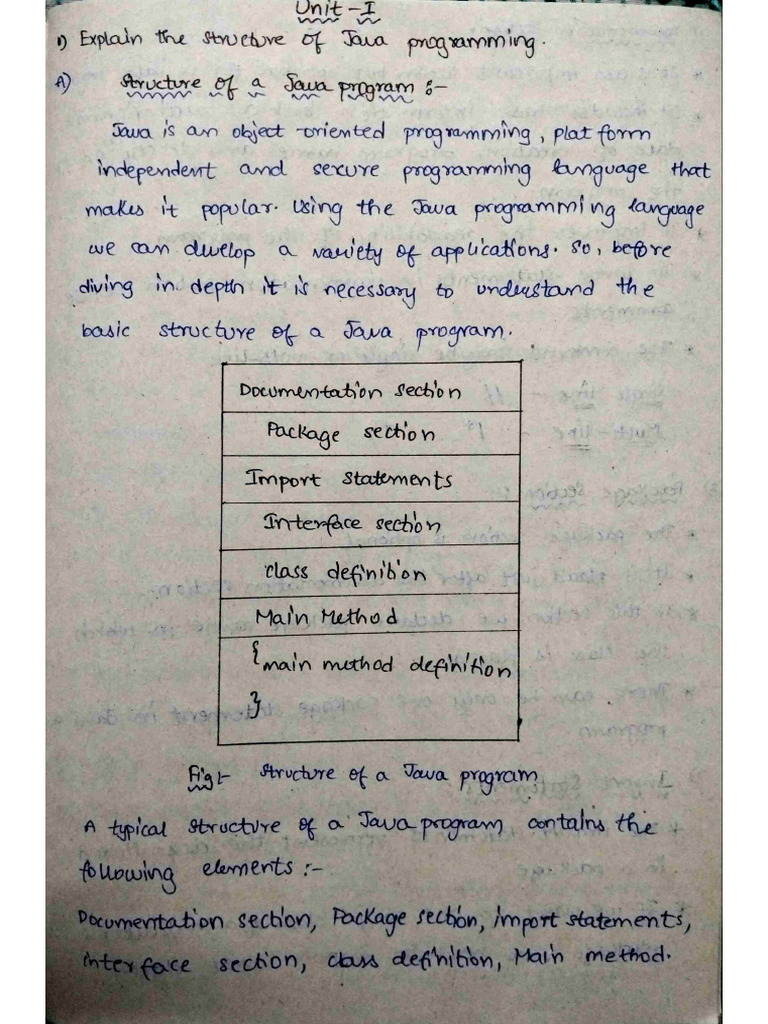 Unit - I
1) Explain the structure of Java programming.
A) Structure of a Java program :-
Java is an object oriented programming, plat form
independent and secure programming language that
makes it popular. Using the Java programming language
we can develop a variety of applications. So, before
diving in depth it is necessary to understand the
basic structure of a Java program.
Documentation section
Package section
Import statements
Interface section
class definition
Main Method
{main method definition
}
Fig:- structure of a Java program
A typical structure of a Java program contains the
following elements :-
Documentation section, Package section, import statements,
interface section, class definition, Main method.